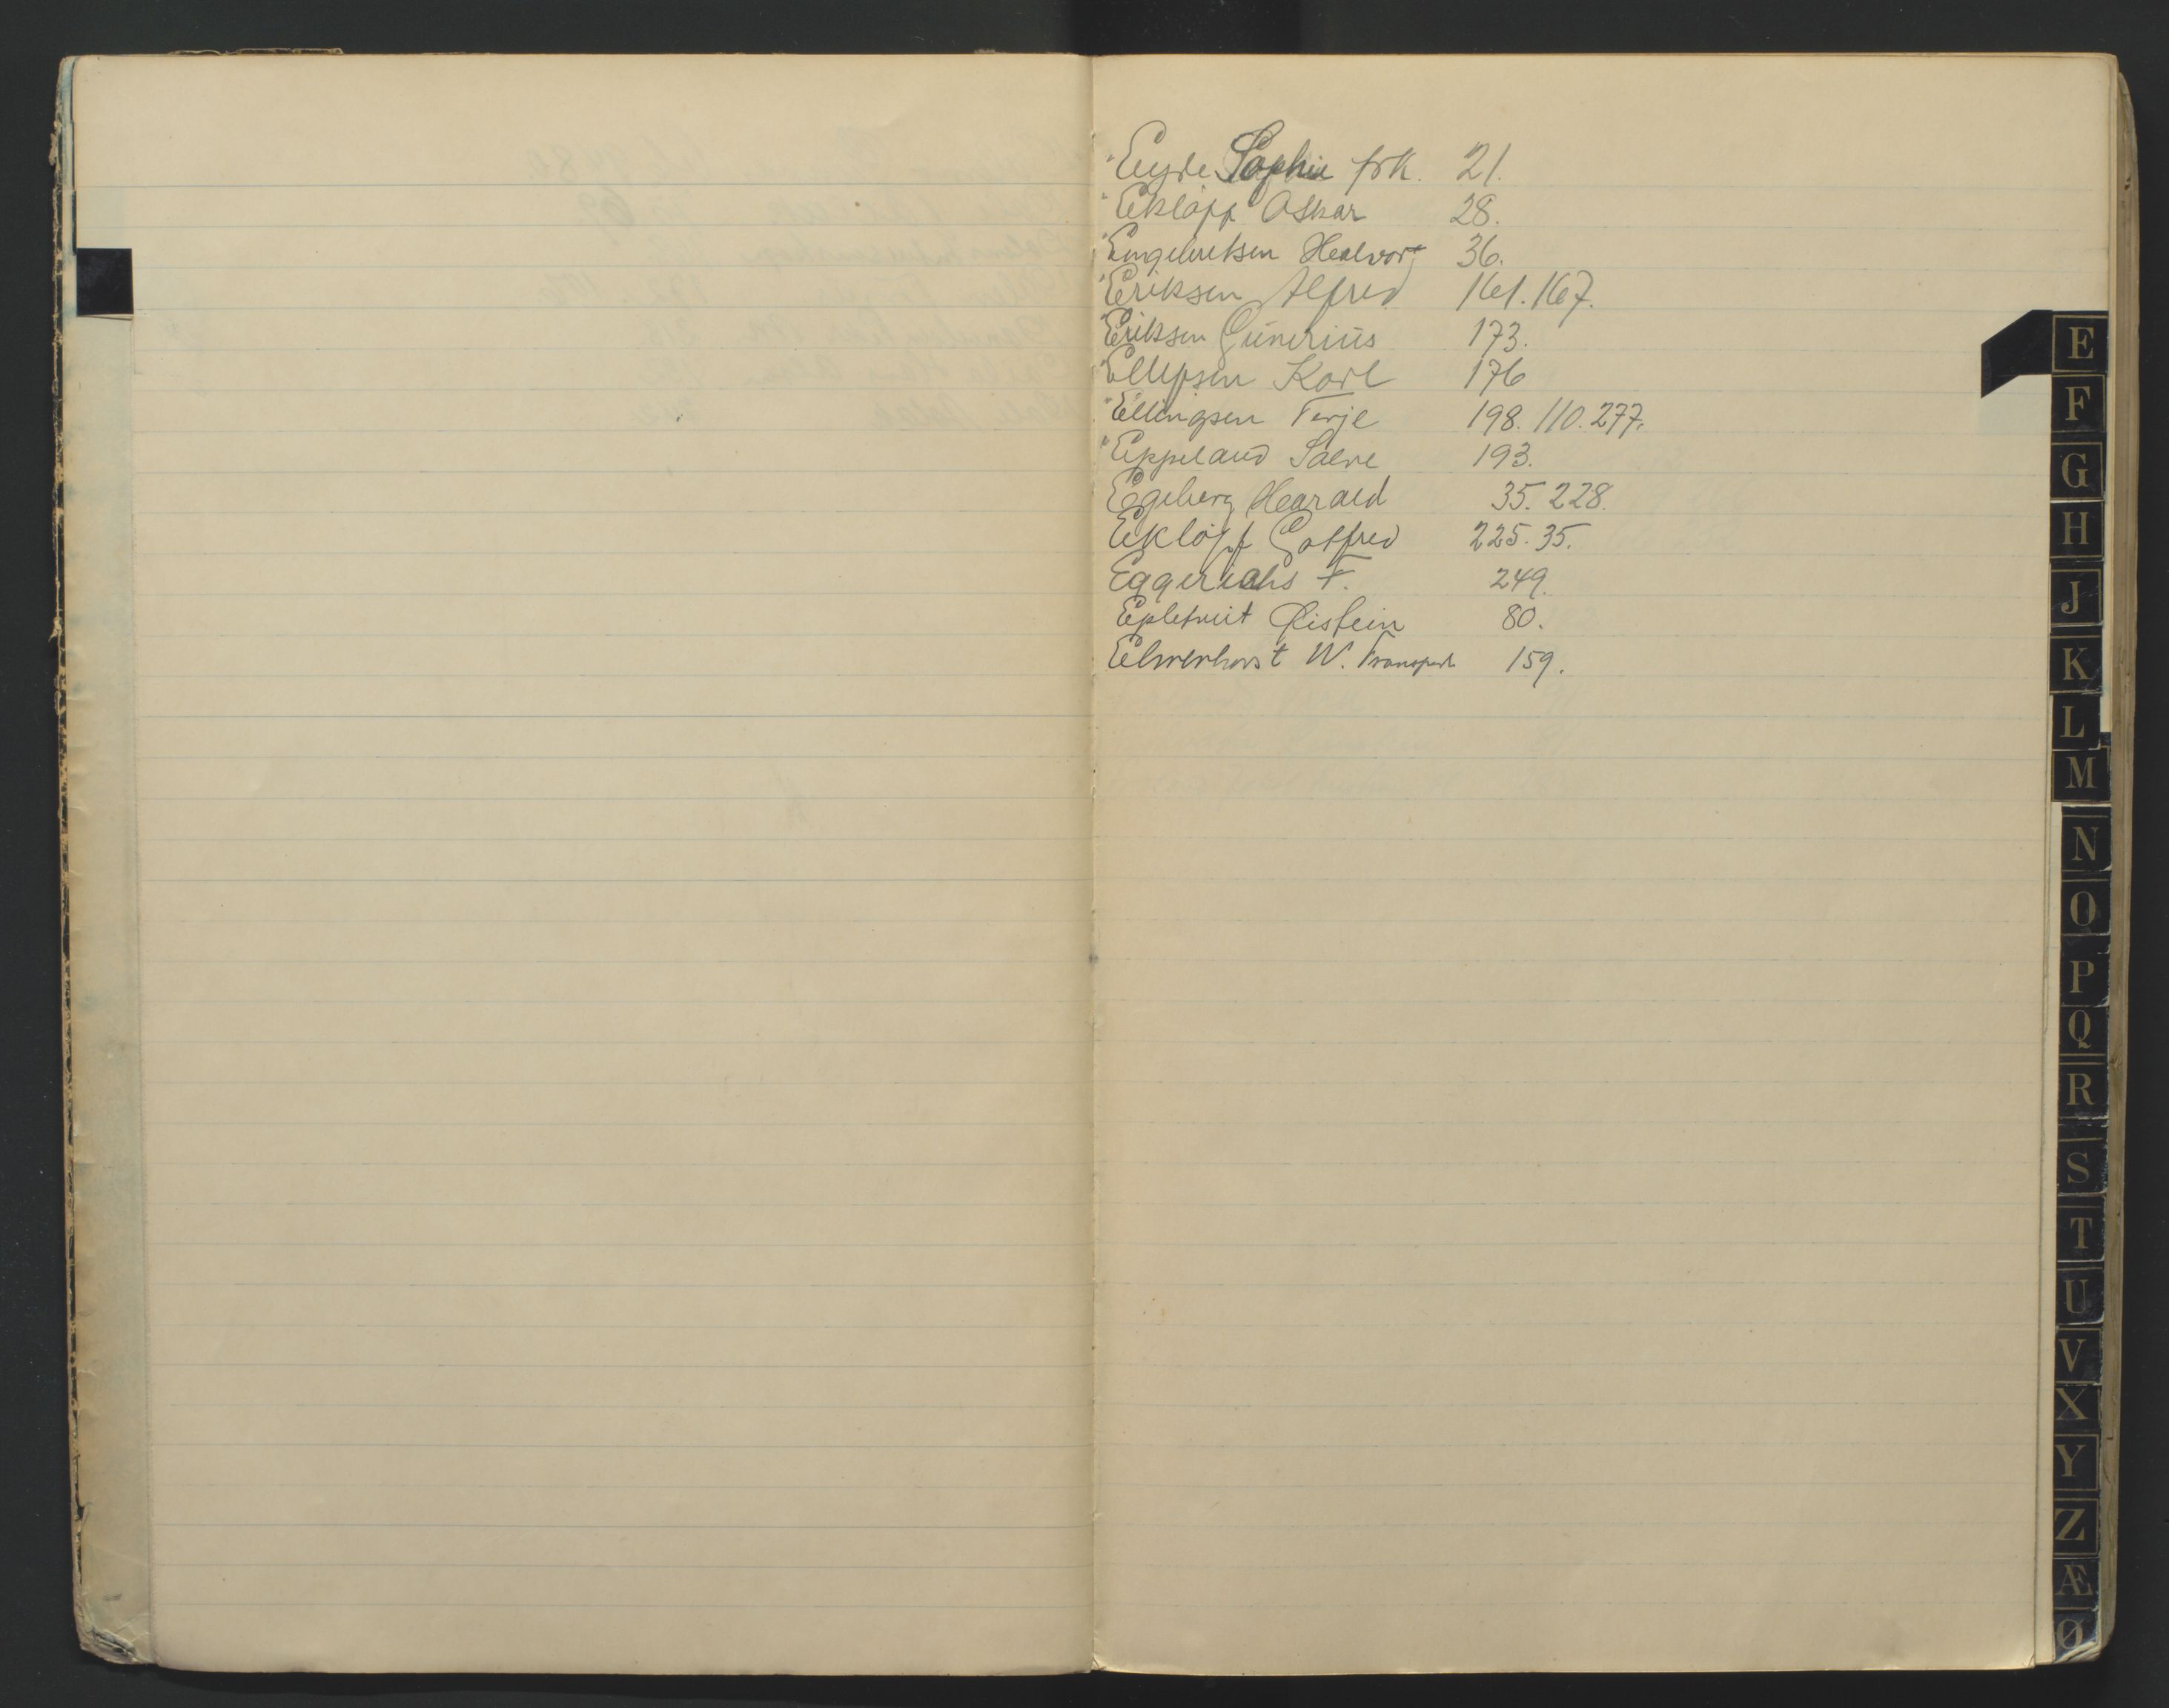 Eyde Sophie frk. 21.
Ekløpp Oskar 28.
Engebretsen Halvor 36.
Eriksen Alfred 161. 167.
Eriksen Gunerius 173.
Ellefsen Karl 176
Ellingsen Terje 198. 110. 277.
Eppeland Salve 193.
Egeberg Harald 35. 228.
Ekløpf Gotfred 225. 35.
Eggerichs F. 249.
Epletveit Øistein 80.
Elmenhorst W. Transport 159.
E
F
G
H
J
K
L
M
N
O
P
Q
R
S
T
U
V
X
Y
Z
Æ
Ø